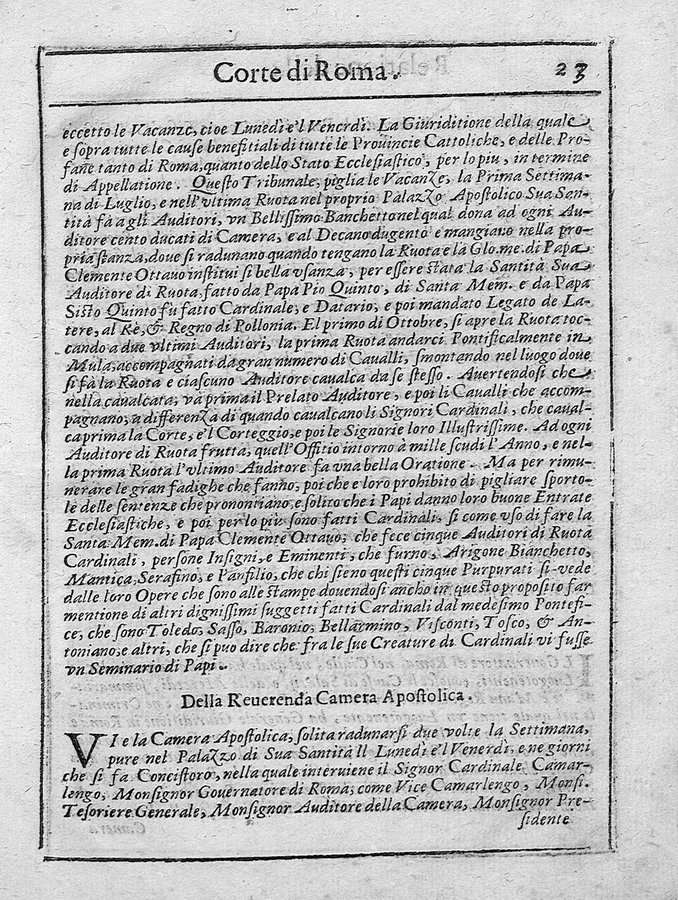 Corte di Roma. 23
eccetto le Vacanze, cioe Lunedì e'l Venerdì. La Giuriditione della quale
e sopra tutte le cause benefitiali di tutte le Prouincie Cattoliche, e delle Pro-
fane tanto di Roma, quanto dello Stato Ecclesiastico, per lo piu, in termine
di Appellatione. Questo Tribunale, piglia le Vacanze, la Prima Settima-
na di Luglio, e nell'vltima Ruota nel proprio Palazzo Apostolico Sua San-
tità fà a gli Auditori, vn Bellissimo Banchetto nel qual dona ad ogni Au-
ditore cento ducati di Camera, e al Decano dugento e mangiano nella pro-
pria stanza, doue si radunano quando tengano la Ruota e la Glo. me. di Papa
Clemente Ottauo institui si bella vsanza, per essere stata la Santità Sua
Auditore di Ruota fatto da Papa Pio Quinto, di Santa Mem. e da Papa
Sisto Quinto fù fatto Cardinale, e Datario, e poi mandato Legato de La-
tere, al Rè, & Regno di Pollonia. El primo di Ottobre, si apre la Ruota toc-
cando a due vltimi Auditori, la prima Ruota andarci Pontificalmente in
Mula, accompagnati da gran numero di Caualli, smontando nel luogo doue
si fà la Ruota e ciascuno Auditore caualca da se stesso. Auertendosi che
nella caualcata, và prima il Prelato Auditore, e poi li Caualli che accom-
pagnano, a differenza di quando caualcano li Signori Cardinali, che caual-
ca prima la Corte, e'l Corteggio, e poi le Signorie loro Illustrissime. Ad ogni
Auditore di Ruota frutta, quell'Offitio intorno à mille scudi l'Anno, e nel-
la prima Ruota l'vltimo Auditore fa vna bella Oratione. Ma per rimu-
nerare le gran fadighe che fanno, poi che e loro prohibito di pigliare sporto-
le delle sentenze che pronontiano, e solito che i Papi danno loro buone Entrate
Ecclesiastiche, e poi per lo piu sono fatti Cardinali, si come vso di fare la
Santa Mem. di Papa Clemente Ottauo, che fece cinque Auditori di Ruota
Cardinali, persone Insigni, e Eminenti, che furno, Arigone Bianchetto,
Mantica, Serafino, e Panfilio, che chi sieno questi cinque Purpurati si vede
dalle loro Opere che sono alle stampe douendosi ancho in questo proposito far
mentione di altri dignissimi suggetti fatti Cardinali dal medesimo Pontefi-
ce, che sono Toledo, Sasso, Baronio, Bellarmino, Visconti, Tosco, & An-
toniano, e altri, che si puo dire che fra le sue Creature di Cardinali vi fusse
vn Seminario di Papi.
Della Reuerenda Camera Apostolica.
VI e la Camera Apostolica, solita radunarsi due volte la Settimana,
pure nel Palazzo di Sua Santità Il Lunedì e'l Venerdì, e ne giorni
che si fa Concistoro, nella quale interuiene il Signor Cardinale Camar-
lengo, Monsignor Gouernatore di Roma, come Vice Camarlengo, Monsi.
Tesoriere Generale, Monsignor Auditore della Camera, Monsignor Pre-
sidente